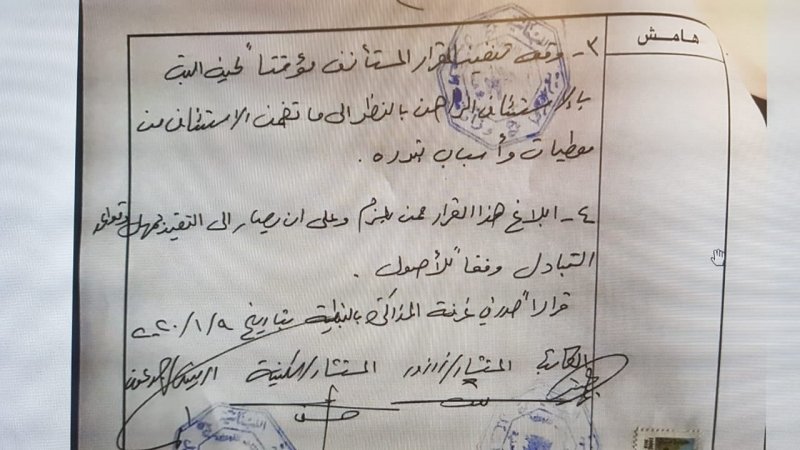 هامش
٣- وقف تنفيذ القرار المستأنف مؤقتاً لحين البت
بالاستئناف الراهن بالنظر الى ما تضمن الاستئناف من
معطيات وأسباب تبرره.
٤- ابلاغ هذا القرار ممن يلزم وعلى ان يصار الى التقيد بمهل وقواعد
التبادل وفقاً للأصول.
قراراً صدر في غرفة المذاكرة بالنبطية بتاريخ ٢٠٢٠/١/٩
الكاتب المستشار/ المستشار/ الرئيس/